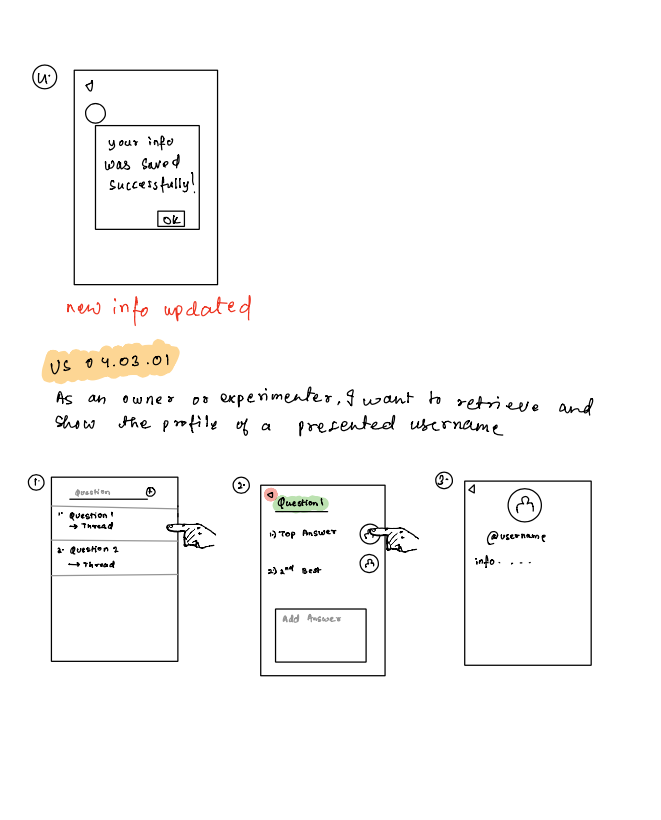 4.
your info
was saved
successfully!
OK
new info updated
US 04.03.01
As an owner or experimenter, I want to retrieve and
show the profile of a presented username
1.
Question
+
1. Question 1
→ Thread
2. Question 2
→ Thread
2.
Question 1
1.) Top Answer
2.) 2nd Best
Add Answer
3.
@username
info . . . .